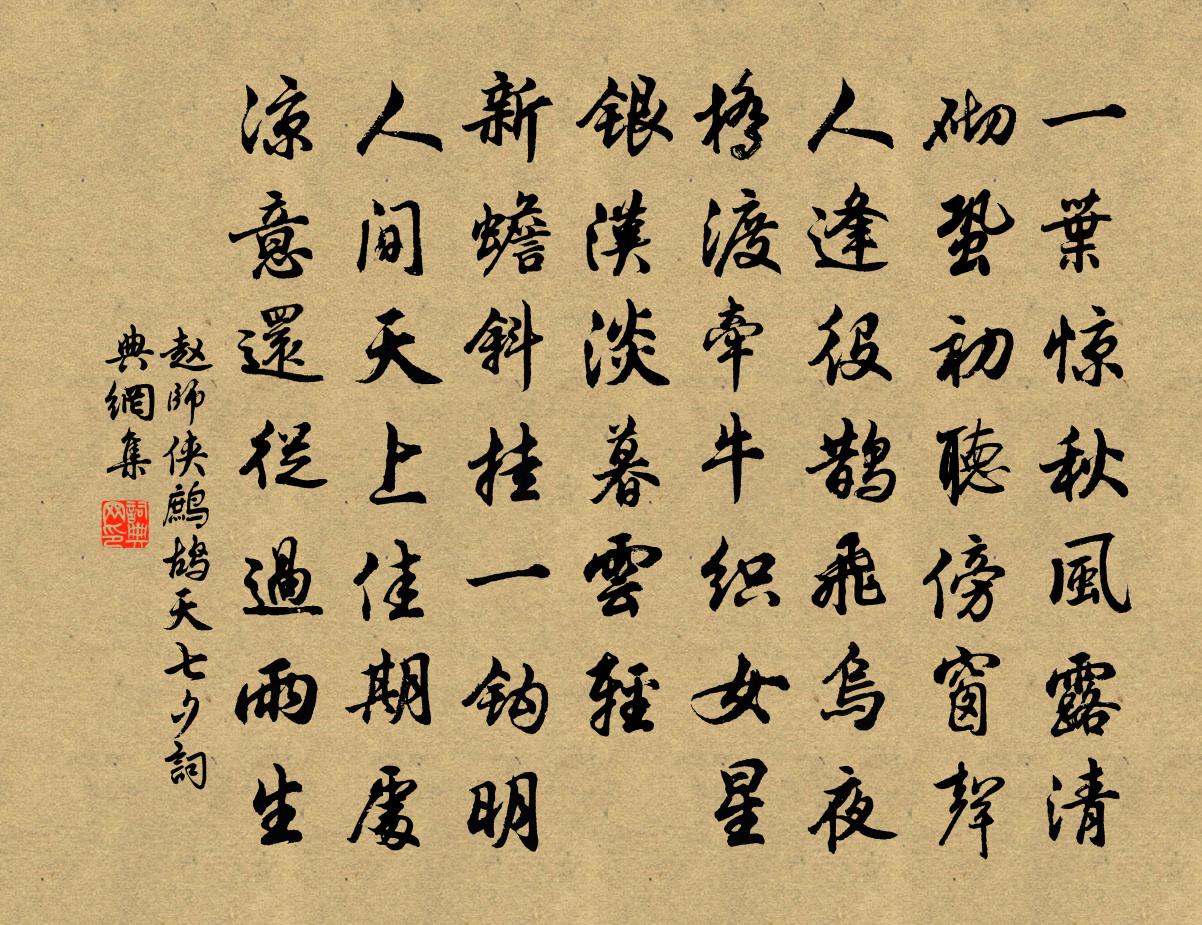 一葉惊秋風露清
砌蛩初聽傍窗聲
人逢役鹊飛烏夜
橋渡牽牛织女星
銀漢淡暮雲輕
新蟾斜挂一钩明
人间天上佳期處
凉意還從過雨生
赵師侠鷓鸪天七夕詞
典網集
詞典网印